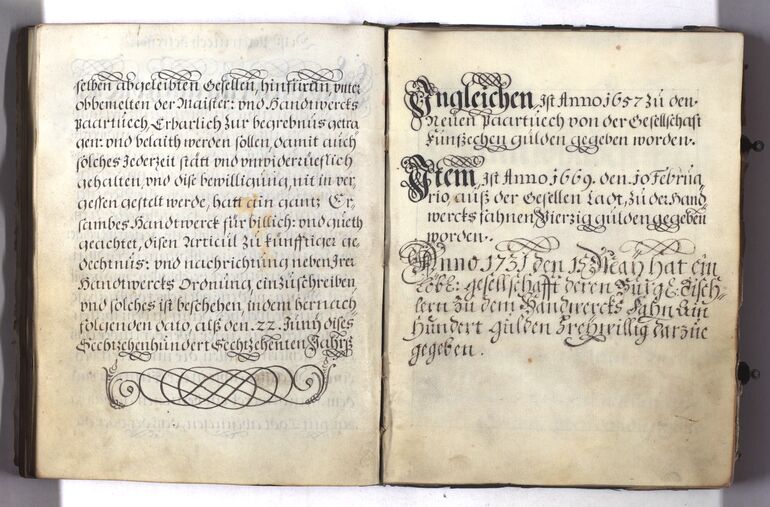 selben abgeleibten Gesellen, hinfüran, vnter
obbemelten der Maister: vnd Handtwercks
Paartuech, Erbarlich zur begrebnus getra
gen: vnd belaith werden sollen, damit auch
solches Jederzeit statt vnd vnwiderueflich
gehalten, vnd dise bewilligung, nit in ver,
gessen gestelt werde, hatt ein gantz Er,
sambes Handtwerck für billich: vnd gueth
geachtet, disen Articul zu künfftiger ge
dechtnus: vnd nachrichtung neben Irer
Handwercks Ordnung, einzuschreiben,
vnd solches ist beschehen, in dem hernach
folgenden dato, auß den. 22. Junÿ dises
Sechtzehenhundert Sechtzehenten Jahrß
Ingleichen, ist Anno 1657 zu den
Neuen Paartuech von der Gesellschaft
Fünfzechen gulden gegeben worden.
Item, ist Anno 1669. den. 10 Februa
rio, auß der Gesellen Ladt, zu der Hand
wercks fahnen Vierzig gulden gegeben
worden.
Anno 1731 den 15 May hat ein
Löbl: gesellschafft deren Bürgl: Tisch
lern zu dem Handwercks Fahn Ein
Hundert gulden Freywillig darzue
gegeben.